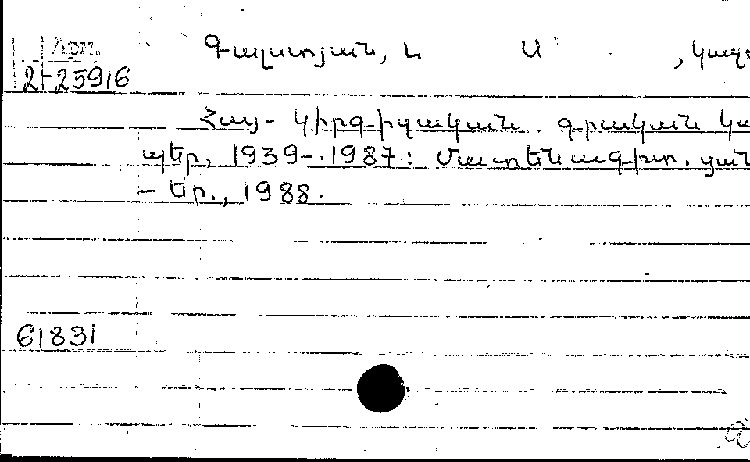 Հրմ.
2-25916
Գալստյան, Ն Ա , կազմ
Հայ-կիրգիզական գրական կա
պեր, 1939-1987: Մատենագիտ. ցան
- Եր., 1988.
61831